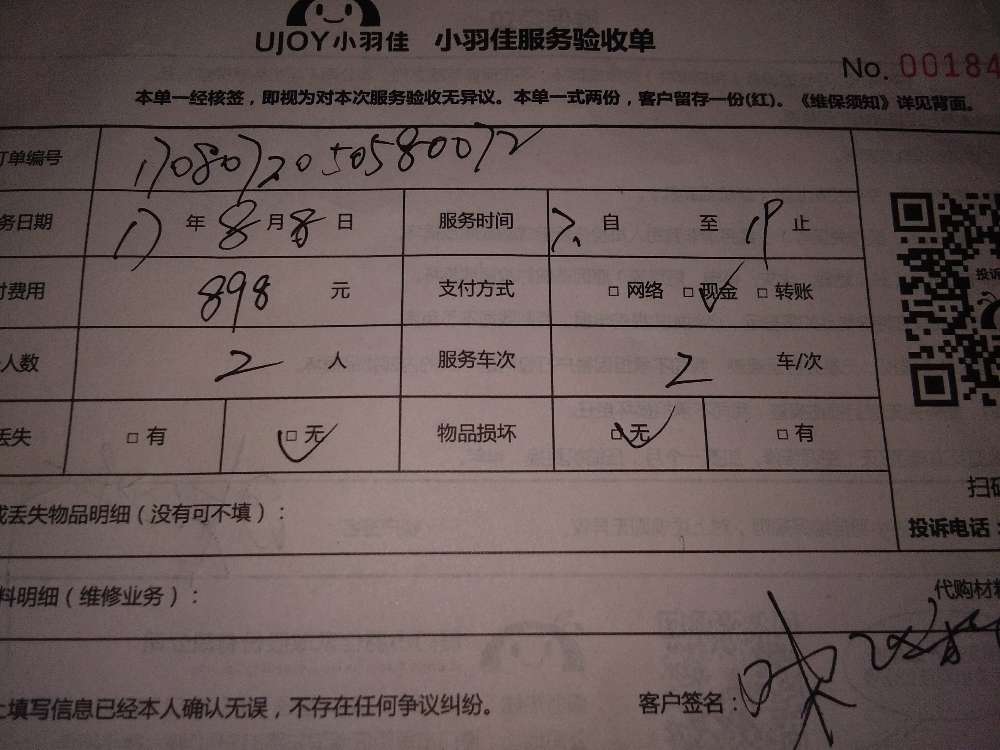 UJOY小羽佳 小羽佳服务验收单
No. 00184
本单一经核签，即视为对本次服务验收无异议。本单一式两份，客户留存一份(红)。《维保须知》详见背面。
订单编号 1708072050580072
务日期 17 年 8 月 8 日 服务时间 自 至 19 止
付费用 898 元 支付方式 □ 网络 □ 现金 □ 转账
人数 2 人 服务车次 2 车/次
丢失 □ 有 □ 无 物品损坏 □ 无 □ 有
投诉
扫码
或丢失物品明细（没有可不填）：
投诉电话：
料明细（维修业务）： 代购材料
上填写信息已经本人确认无误，不存在任何争议纠纷。 客户签名：